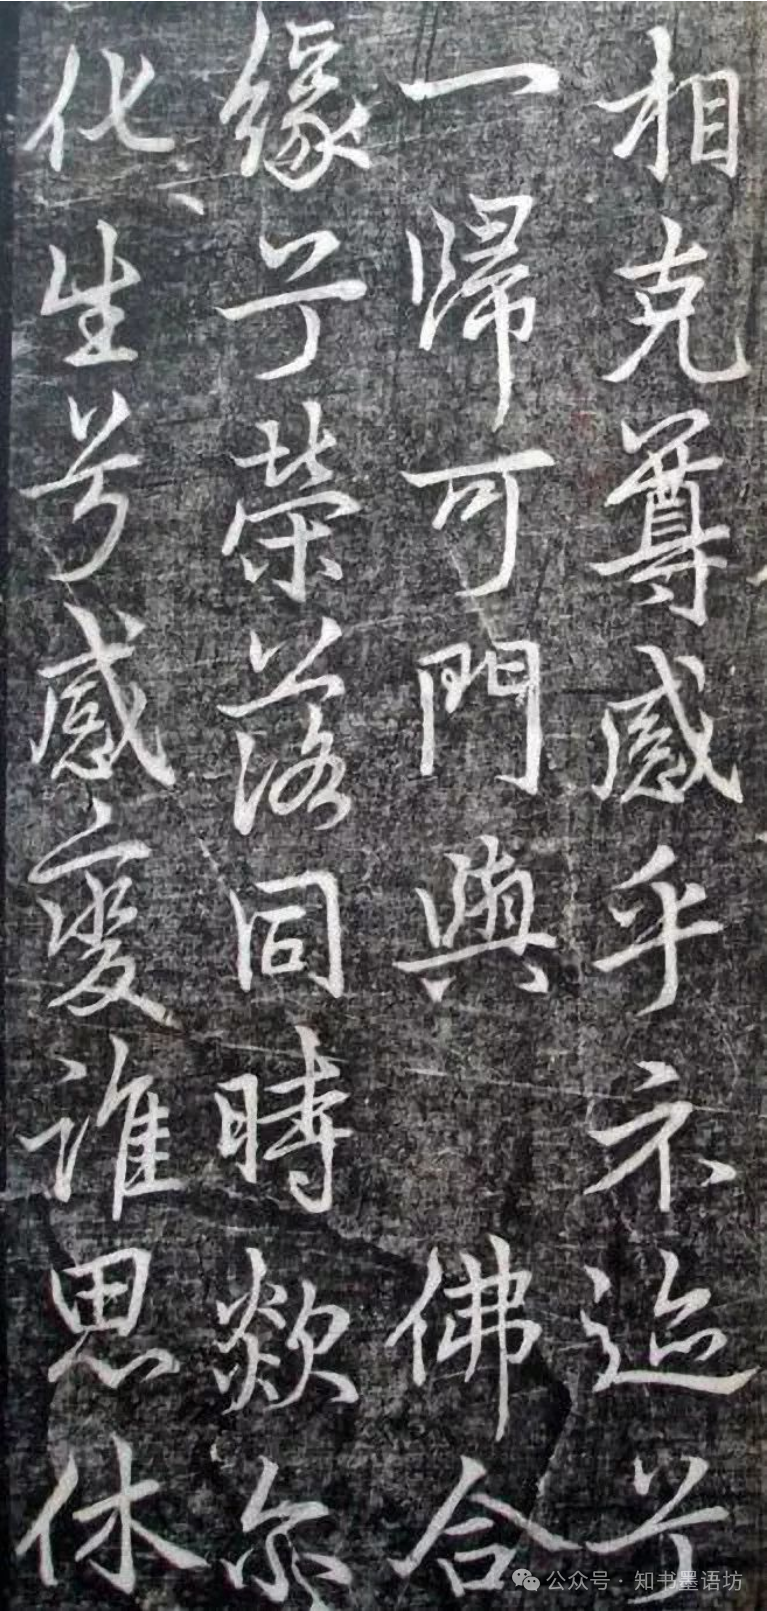 相克尊感乎示迹于
一歸可門與 佛合
緣于榮落同時歘尒
化〻生兮感變誰思休
公众号 · 知书墨语坊